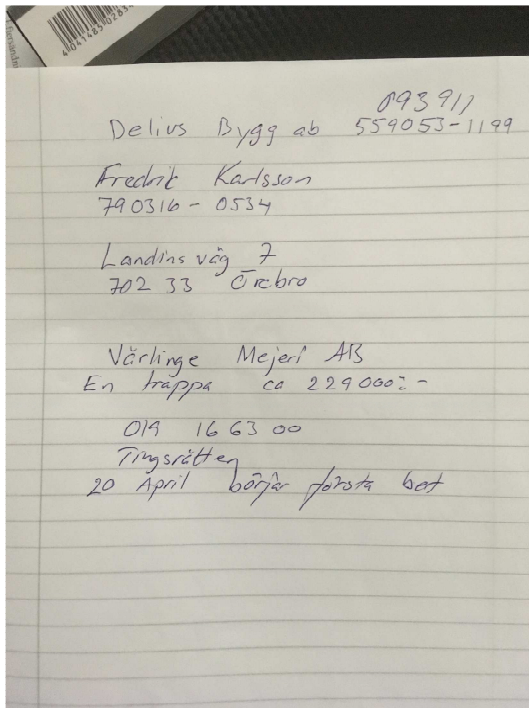 4041485028
093911
Delius Bygg ab 559053-1199
Fredrik Karlsson
790316-0534
Landins väg 7
702 33 Örebro
Värlinge Mejeri AB
En trappa ca 229000:-
019 16 63 00
Tingsrätten
20 April börjar första bot